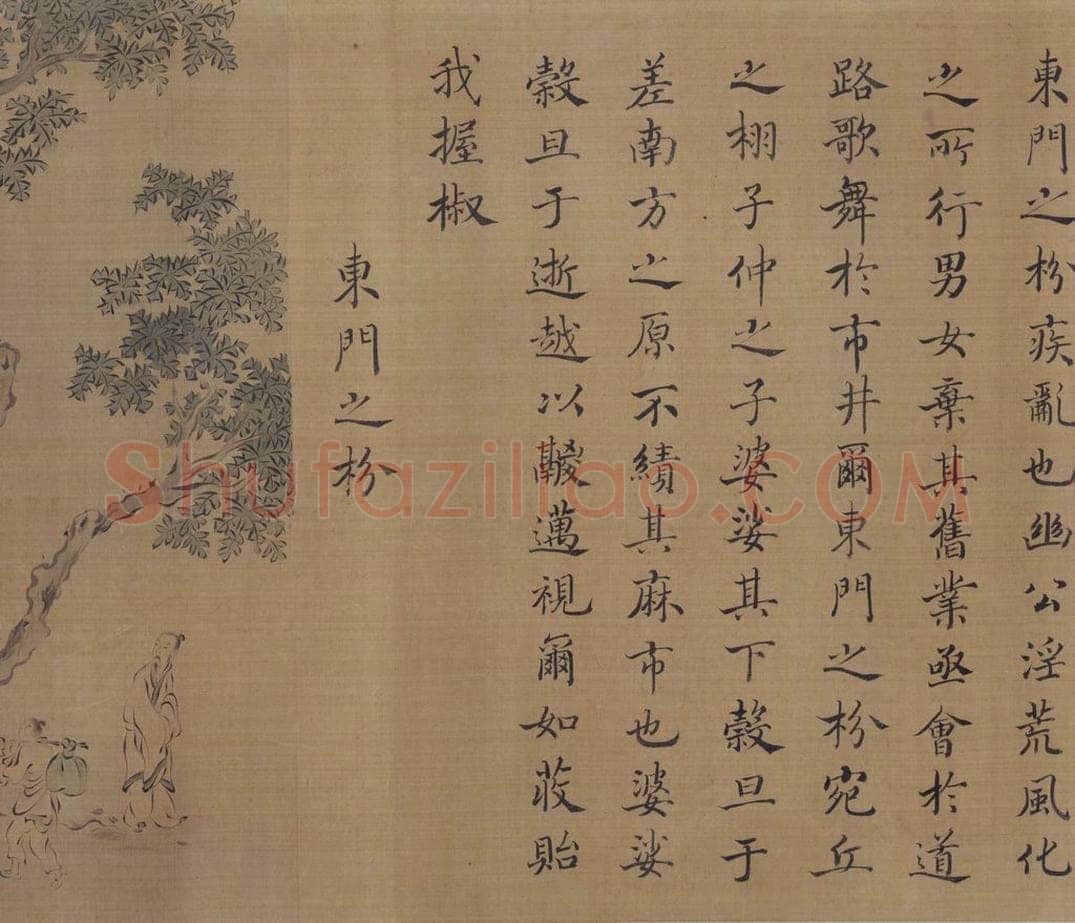 東門之枌疾亂也幽公淫荒風化
之所行男女棄其舊業亟會於道
路歌舞於市井爾東門之枌宛丘
之栩子仲之子婆娑其下穀旦于
差南方之原不績其麻市也婆娑
穀旦于逝越以鬷邁視爾如荍貽
我握椒
東門之枌
Shufaziliao.COM